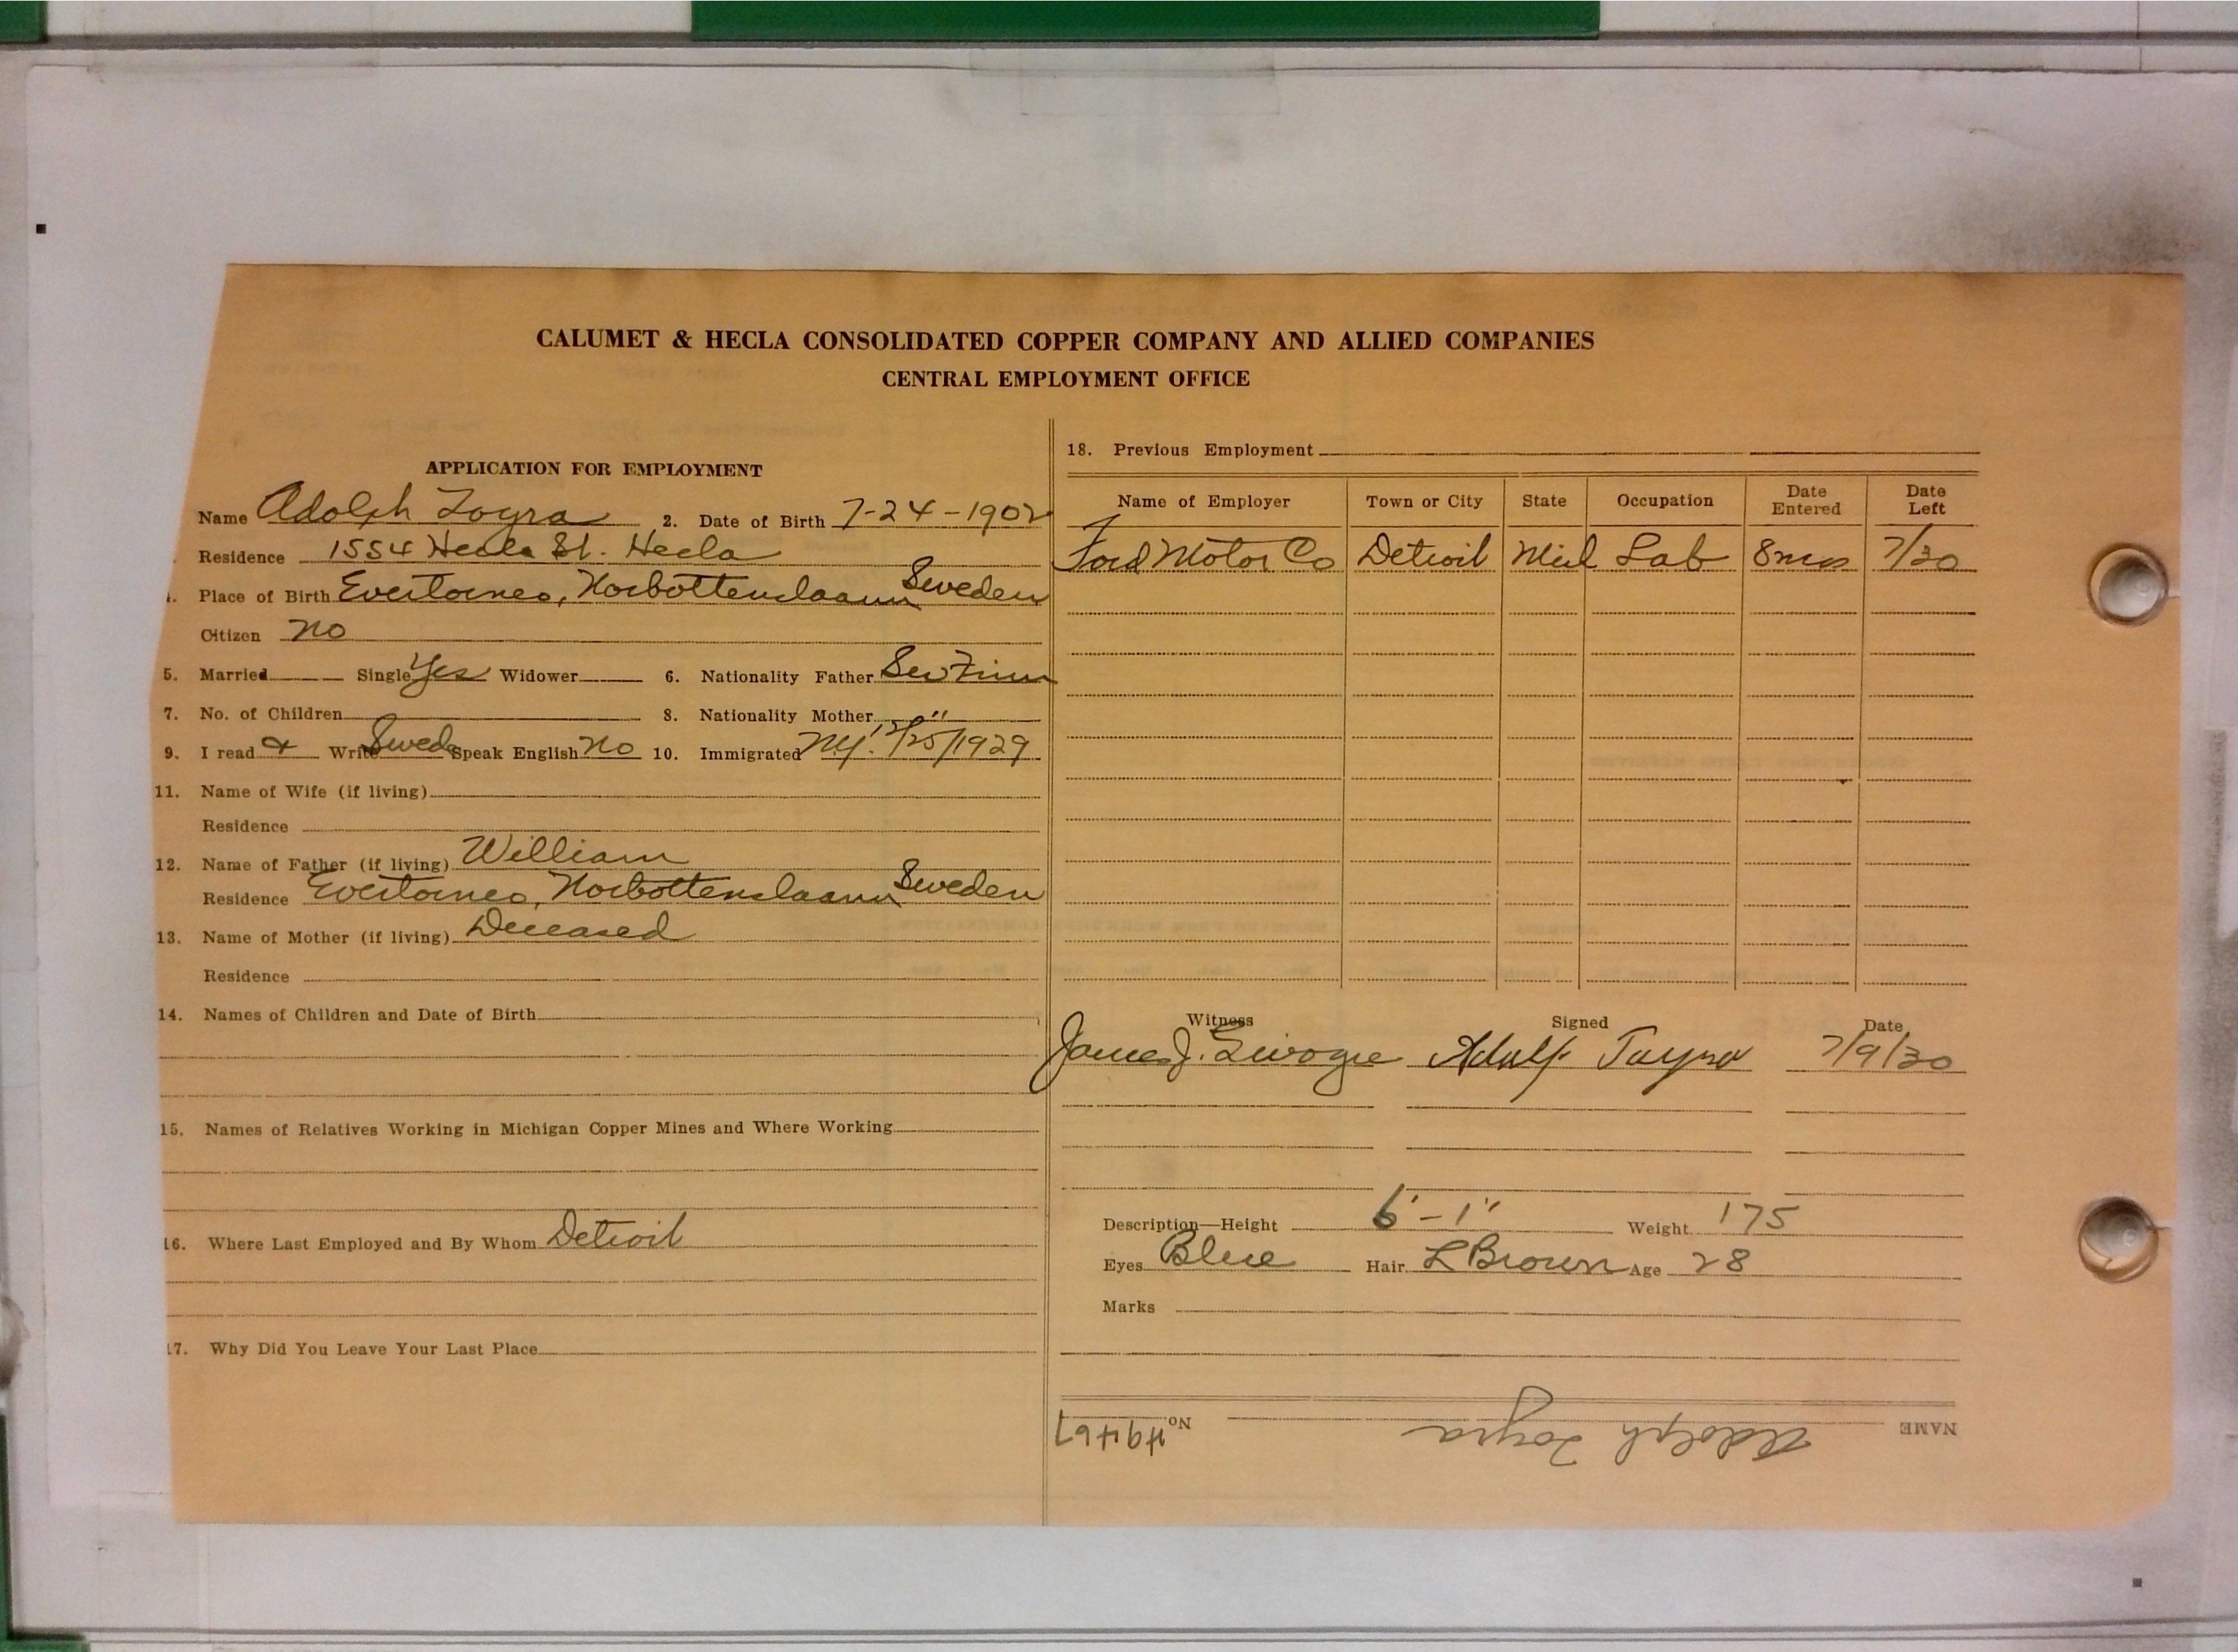 CALUMET & HECLA CONSOLIDATED COPPER COMPANY AND ALLIED COMPANIES
CENTRAL EMPLOYMENT OFFICE
APPLICATION FOR EMPLOYMENT
Name Adolph Toyra 2. Date of Birth 7-24-1902
Residence 1554 Hecla St. Hecla
Place of Birth Evertorneo, Norbottenslaann Sweden
Citizen no
5. Married Single Yes Widower 6. Nationality Father Sw Finn
7. No. of Children 8. Nationality Mother "
9. I read & Write Swed Speak English no 10. Immigrated N.Y. 12/25/1929
11. Name of Wife (if living)
Residence
12. Name of Father (if living) William
Residence Evertorneo, Norbottenslaann Sweden
13. Name of Mother (if living) Deceased
Residence
14. Names of Children and Date of Birth
15. Names of Relatives Working in Michigan Copper Mines and Where Working
16. Where Last Employed and By Whom Detroit
17. Why Did You Leave Your Last Place
18. Previous Employment
Name of Employer Town or City State Occupation Date Entered Date Left
Ford Motor Co Detroit Mich Lab 8mos 7/30
Witness Signed Date
James J. Adolf Toyra 7/9/30
Description—Height 6'-1" Weight 175
Eyes Blue Hair L Brown Age 28
Marks
NAME Adolph Toyra No. 49467